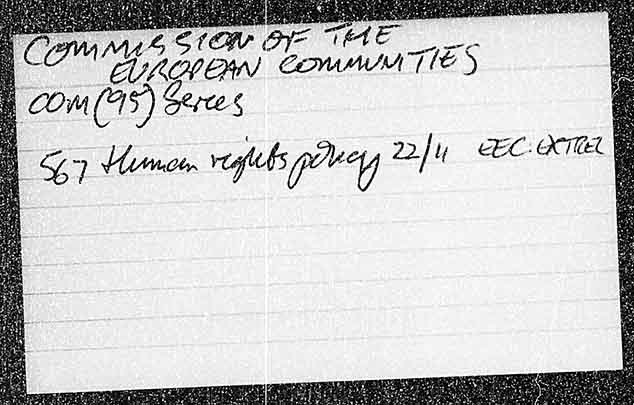 COMMISSION OF THE
EUROPEAN COMMUNITIES
COM(95) Series
567 Human rights policy 22/11 EEC:EXTREL